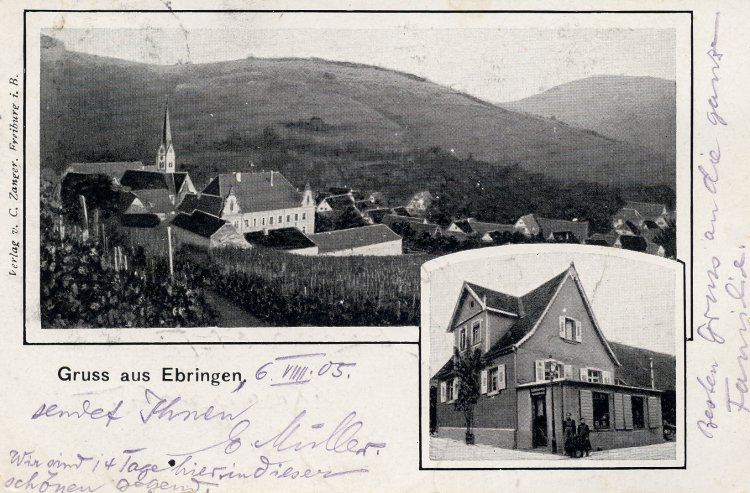 Verlag v. C. Zanger, Freiburg i. B.
Gruss aus Ebringen, 6 VIII. 05.
sendet Ihnen
E. Müller.
Wir sind 14 Tage hier, in dieser
schönen Gegend.
Besten Gruss an die ganze
Familie.